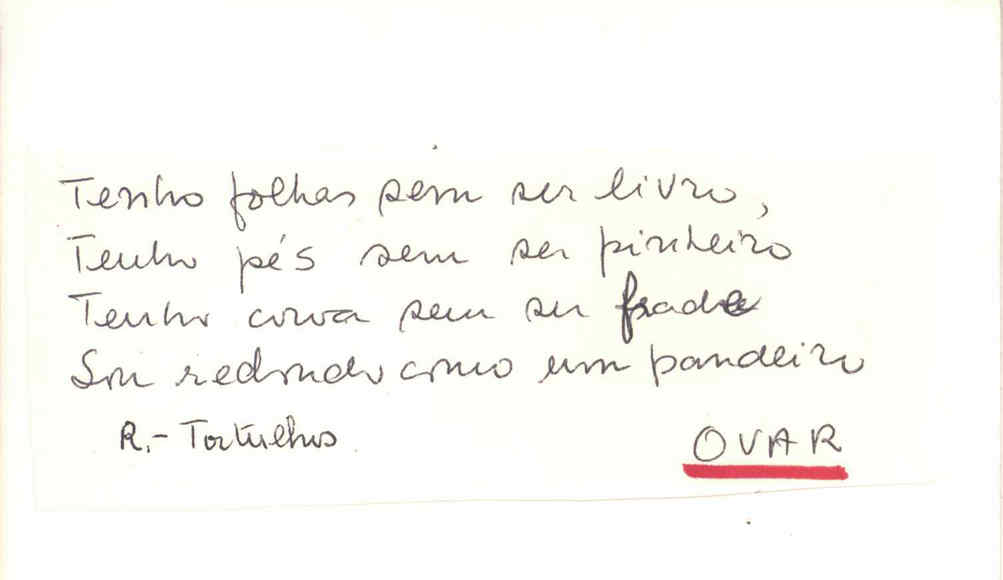 Tenho folhas sem ser livro,
Tenho pés sem ser pinheiro
Tenho coroa sem ser frade
Sou redondo como um pandeiro
R.- Tortulhos OVAR